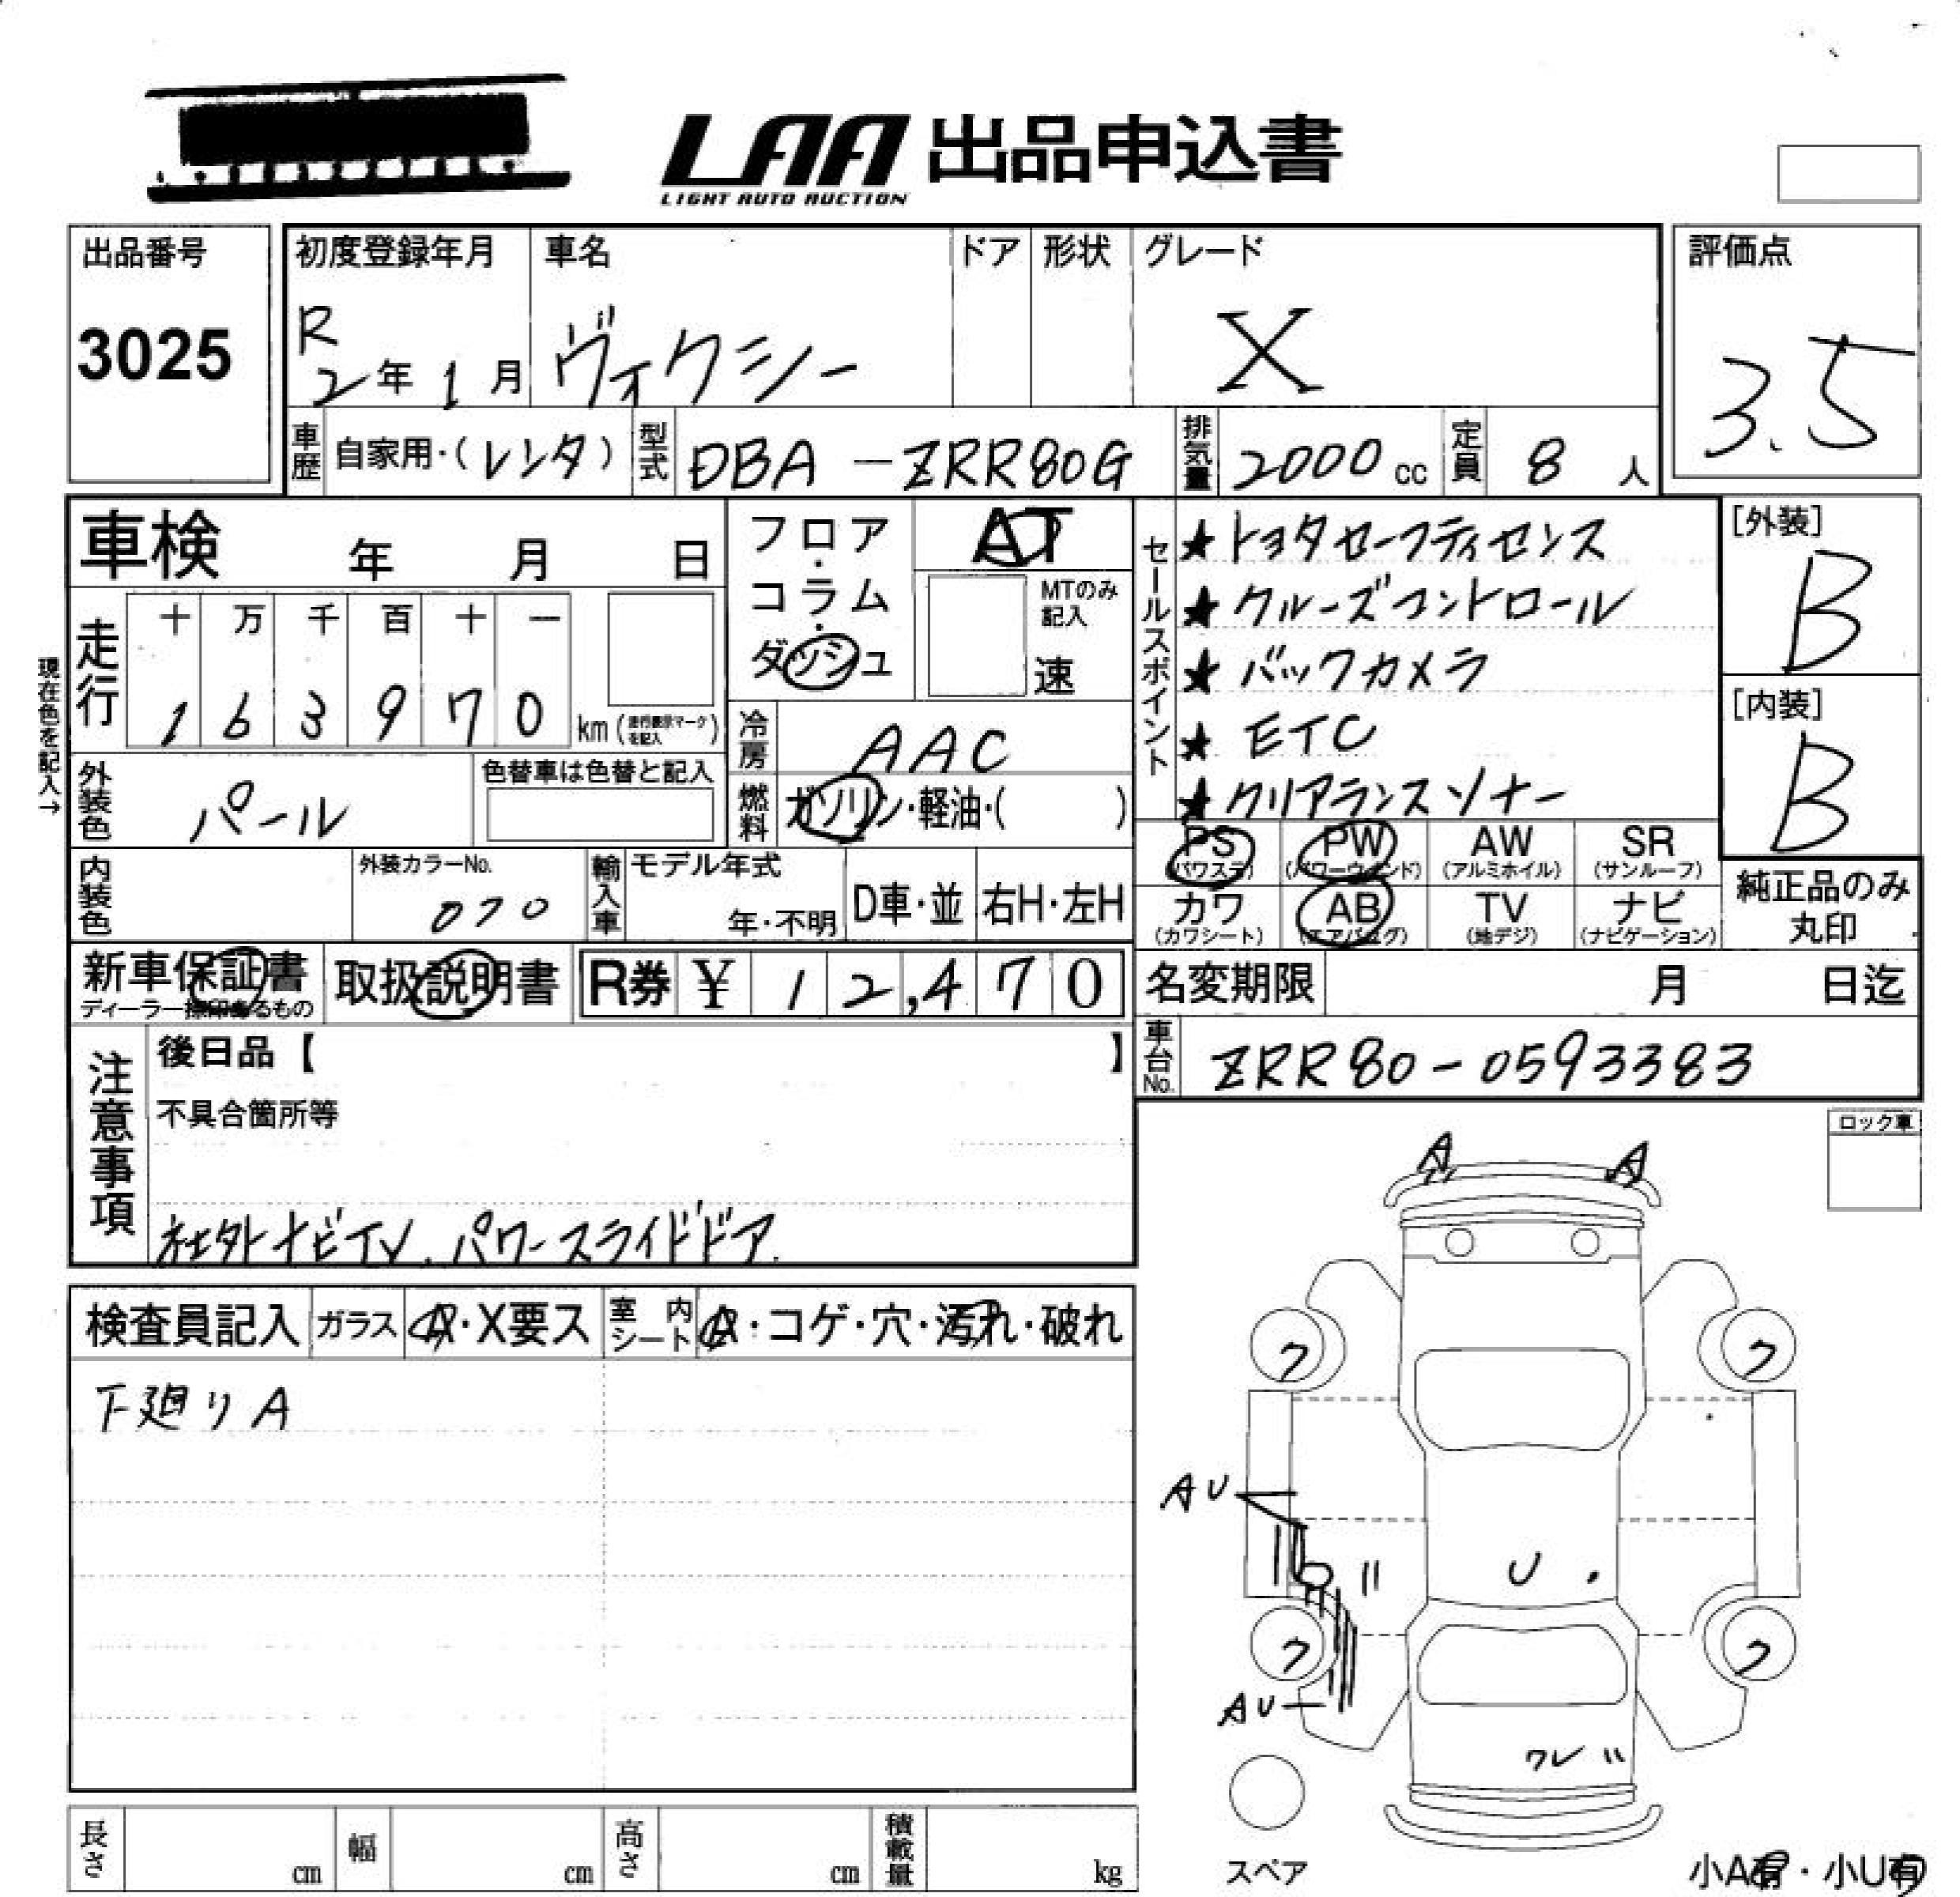 LAA 出品申込書
LIGHT AUTO AUCTION
出品番号
3025
初度登録年月
R
2年 1月
車名
ヴォクシー
ドア
形状
グレード
X
評価点
3.5
車歴 自家用・(レンタ)
型式 DBA-ZRR80G
排気量 2000cc
定員 8人
車検 年 月 日
現在色を記入→
走行
十 万 千 百 十 一
1 6 3 9 7 0 km(走行表示マークを記入)
フロア・コラム・ダッシュ
AT
MTのみ記入
速
冷房 AAC
燃料 ガソリン・軽油・( )
セールスポイント
★トヨタセーフティセンス
★クルーズコントロール
★バックカメラ
★ETC
★クリアランスソナー
[外装]
B
[内装]
B
外装色 パール
色替車は色替と記入
内装色
外装カラーNo.
070
輸入車 モデル年式
年・不明
D車・並
右H・左H
PS
(パワステ)
PW
(パワーウインド)
AW
(アルミホイル)
SR
(サンルーフ)
カワ
(カワシート)
AB
(エアバッグ)
TV
(地デジ)
ナビ
(ナビゲーション)
純正品のみ
丸印
新車保証書
ディーラー捺印あるもの
取扱説明書
R券 ¥ 12,470
名変期限 月 日迄
車台No. ZRR80-0593383
注意事項
後日品【 】
不具合箇所等
社外ナビTV、パワースライドドア
ロック車
検査員記入
ガラス A・X要ス
室内シート A・コゲ・穴・汚れ・破れ
下廻りA
A A
ク ク
AU
U
ク ク
AU
ワレ
スペア
長さ cm
幅 cm
高さ cm
積載量 kg
小A有・小U有